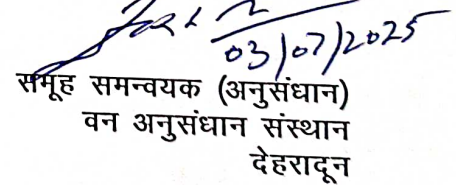 03/07/2025
समूह समन्वयक (अनुसंधान)
वन अनुसंधान संस्थान
देहरादून